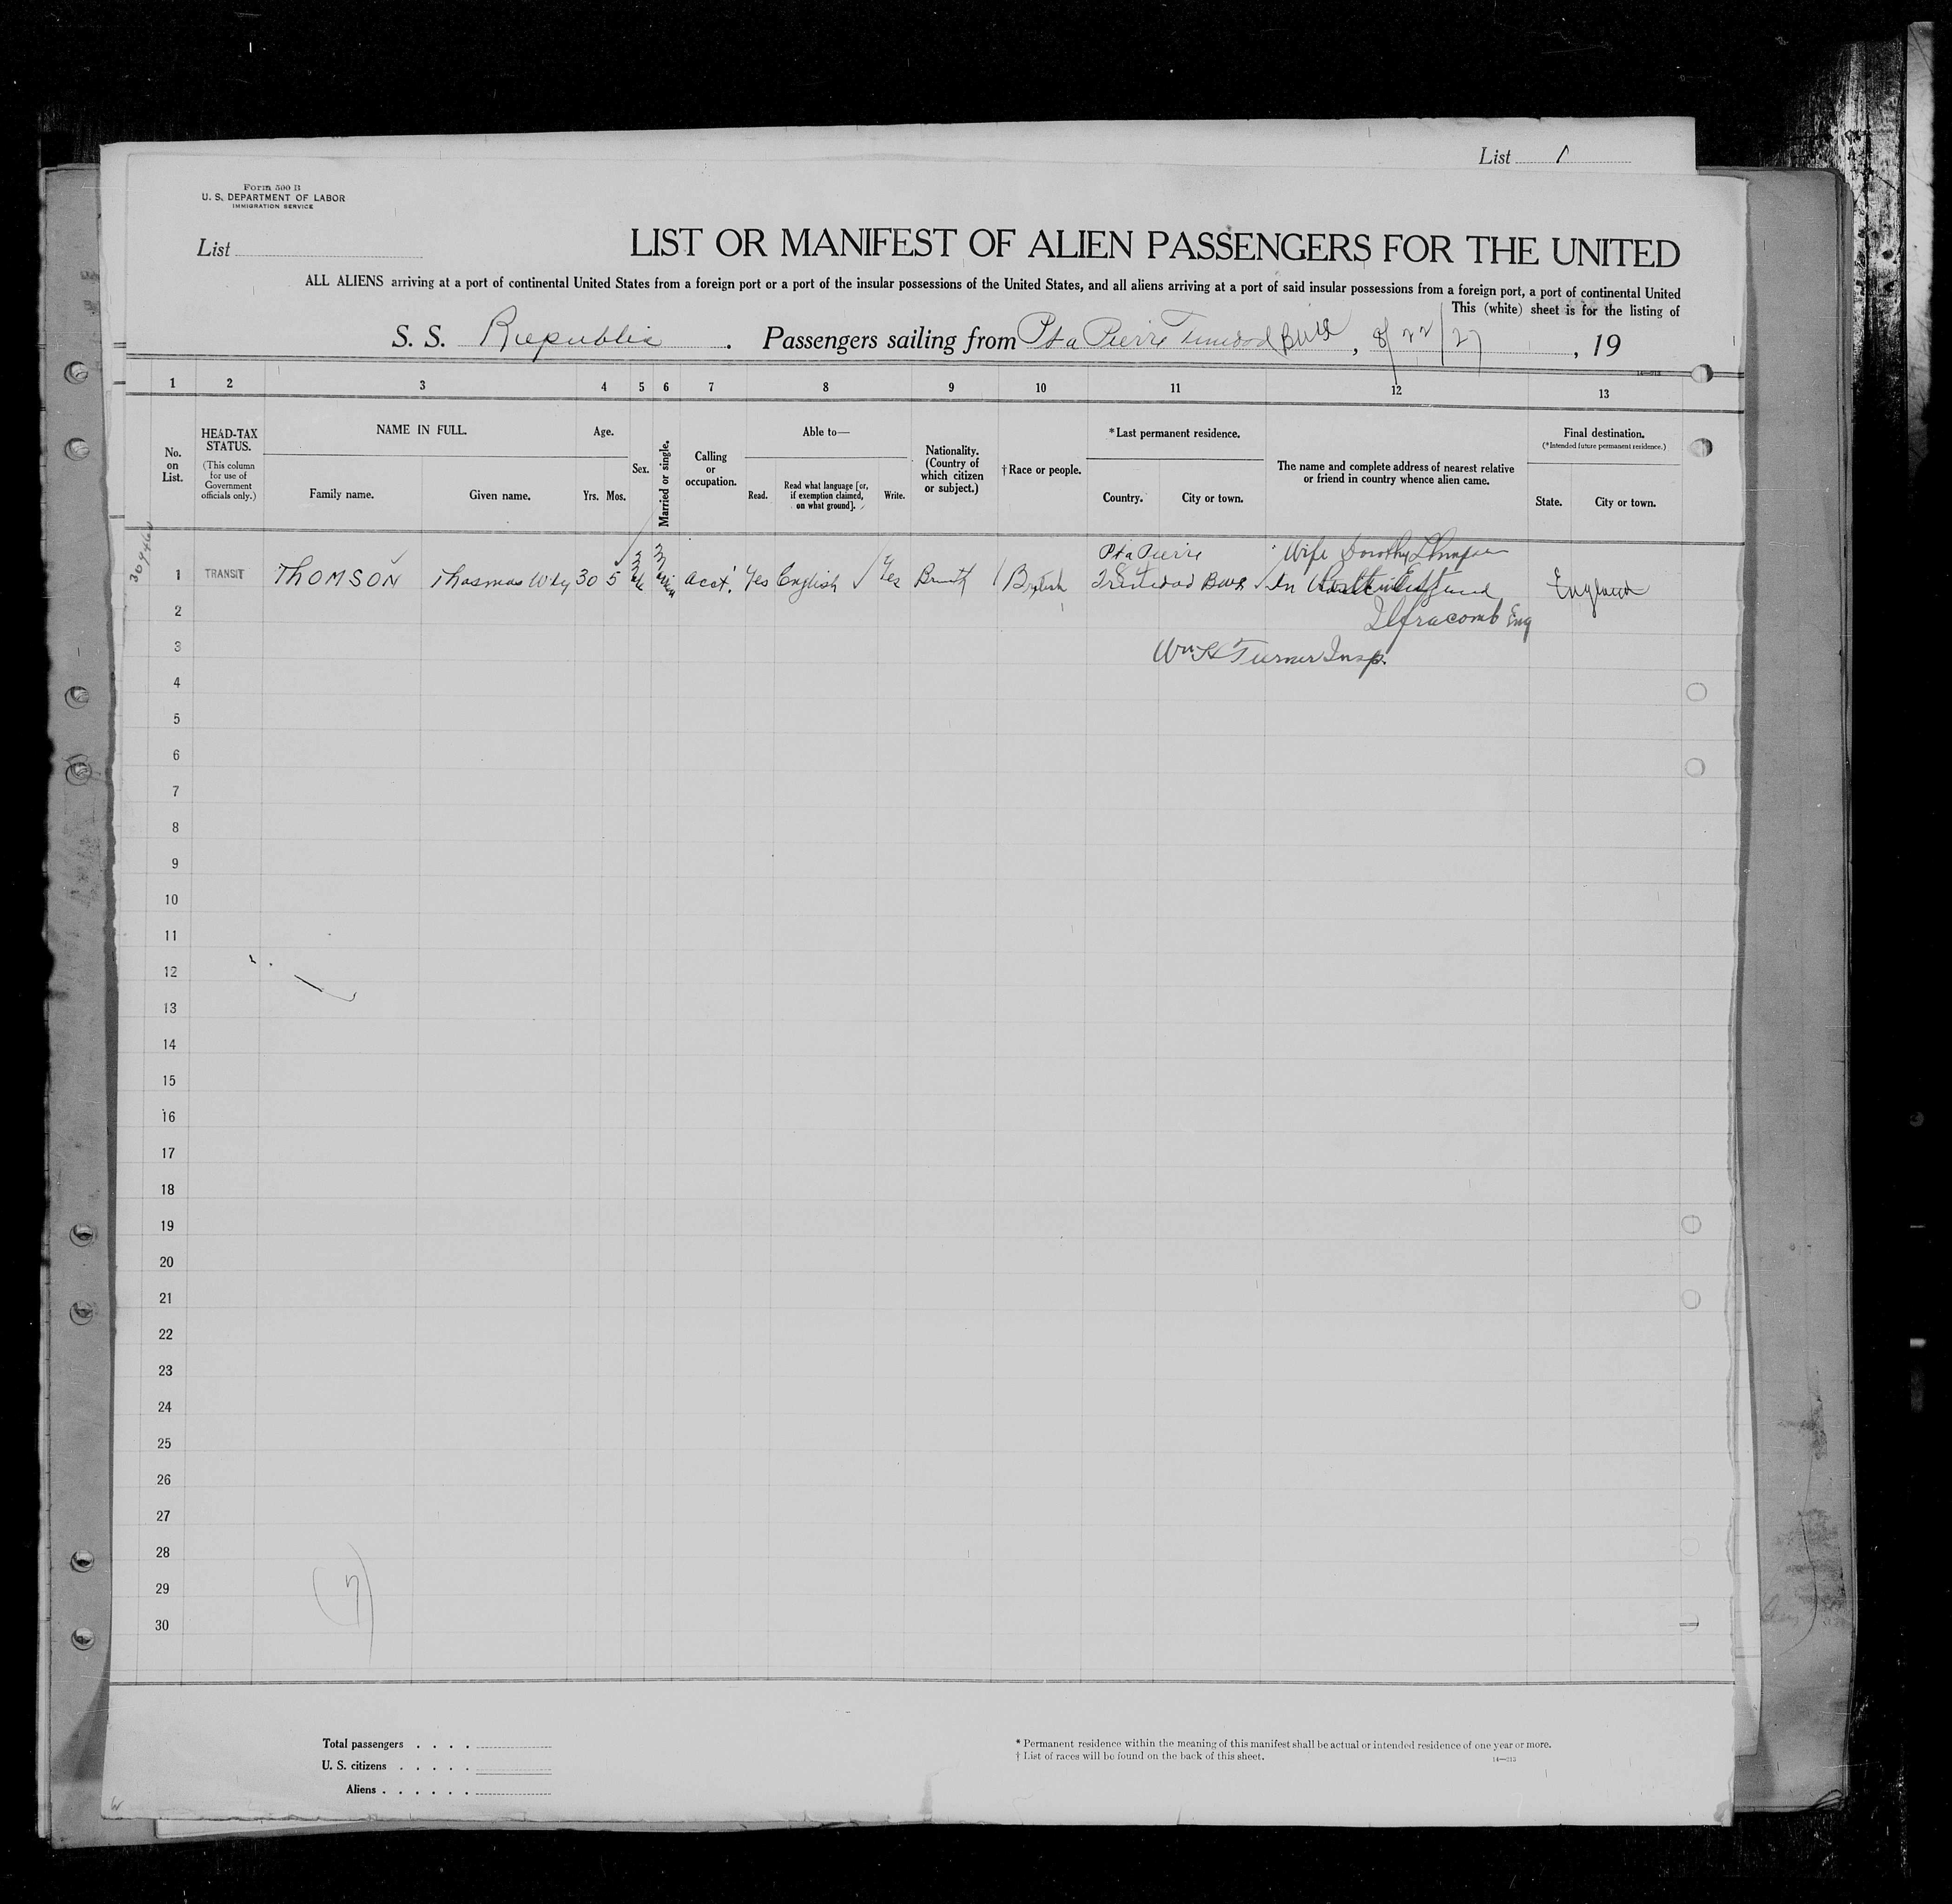 List 1
Form 500 B
U. S. DEPARTMENT OF LABOR
IMMIGRATION SERVICE
List
LIST OR MANIFEST OF ALIEN PASSENGERS FOR THE UNITED
ALL ALIENS arriving at a port of continental United States from a foreign port or a port of the insular possessions of the United States, and all aliens arriving at a port of said insular possessions from a foreign port, a port of continental United
This (white) sheet is for the listing of
S. S. Republic . Passengers sailing from Pt a Pierre Trinidad BWI , 8/22/27 , 19
1 2 3 4 5 6 7 8 9 10 11 12 13
No. on List.
HEAD-TAX STATUS.
(This column for use of Government officials only.)
NAME IN FULL.
Family name. Given name.
Age.
Yrs. Mos.
Sex.
Married or single.
Calling or occupation.
Able to—
Read. Read what language [or, if exemption claimed, on what ground]. Write.
Nationality. (Country of which citizen or subject.)
† Race or people.
* Last permanent residence.
Country. City or town.
The name and complete address of nearest relative or friend in country whence alien came.
Final destination.
(* Intended future permanent residence.)
State. City or town.
Pt a Pierre Wife Dorothy
1 TRANSIT THOMSON 30 5 acct. Yes English Yes British Trinidad England
2 Ilfracomb Eng
3 Wm H Turner Insp.
4
5
6
7
8
9
10
11
12
13
14
15
16
17
18
19
20
21
22
23
24
25
26
27
28
29
30
Total passengers . . . .
U. S. citizens . . . . .
Aliens . . . . . .
* Permanent residence within the meaning of this manifest shall be actual or intended residence of one year or more.
† List of races will be found on the back of this sheet.
14—213